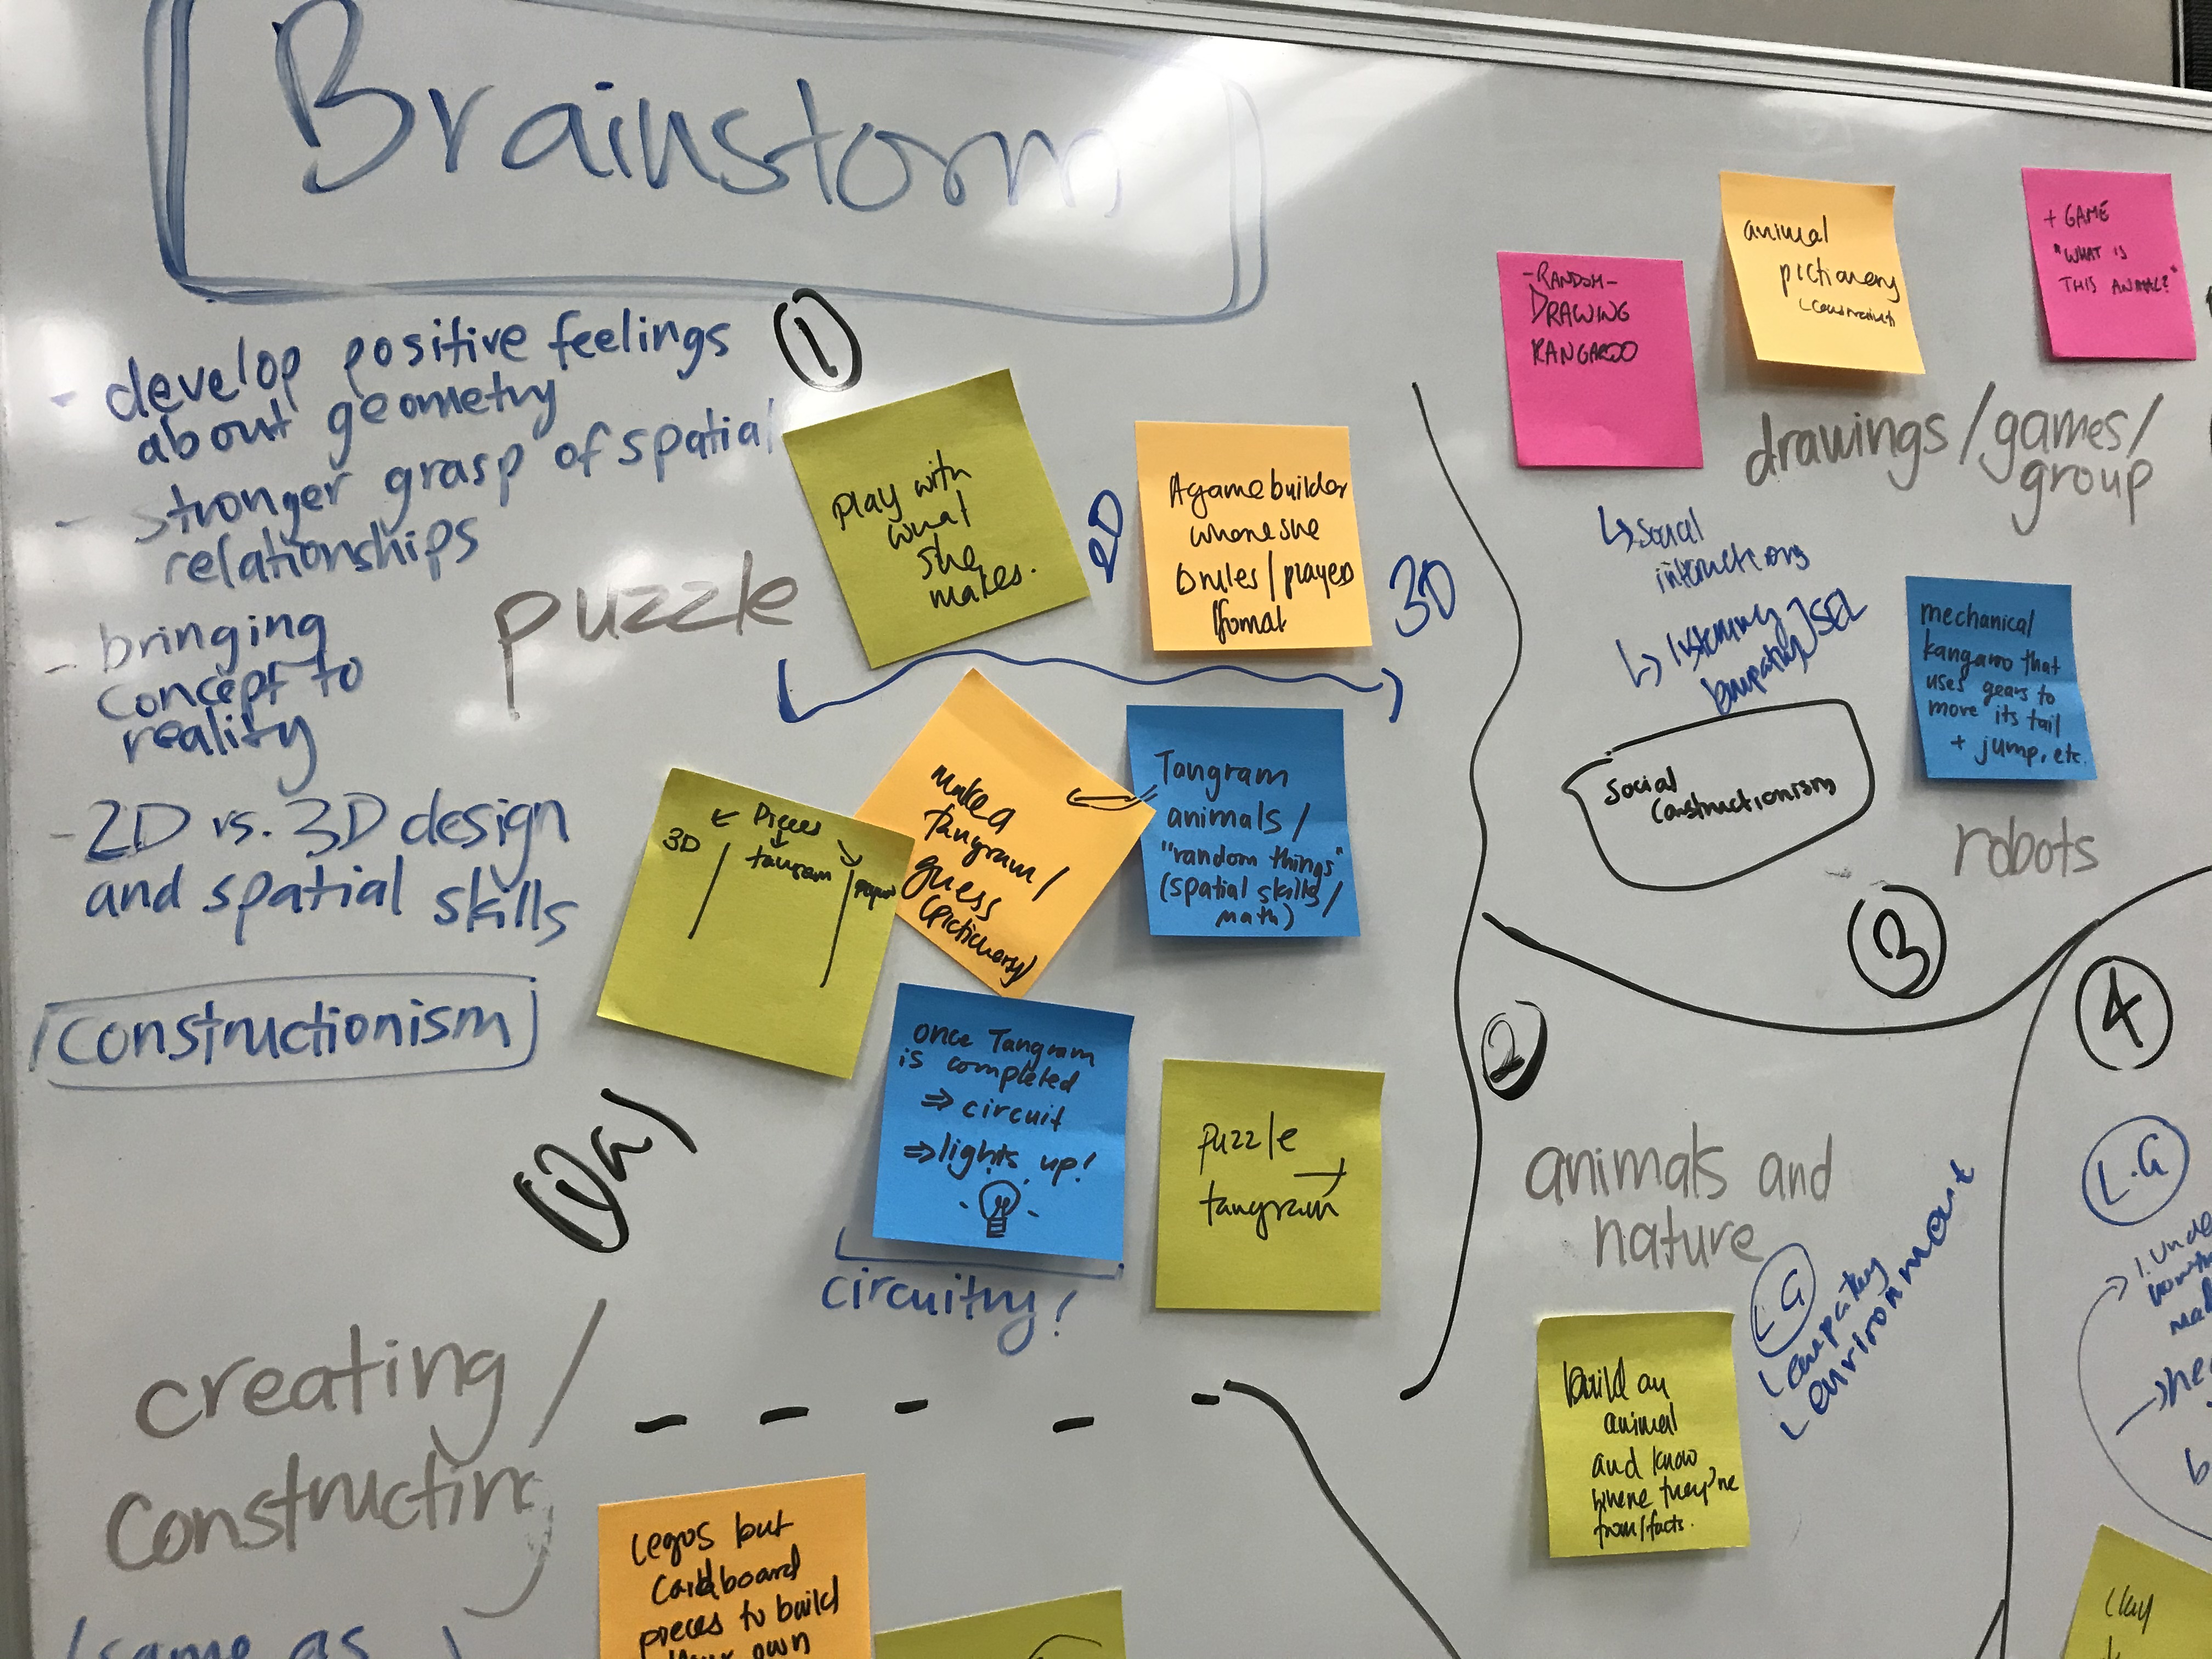 Brainstorm
- develop positive feelings
about geometry
- stronger grasp of spatial
relationships
- bringing
concept to
reality
- 2D vs. 3D design
and spatial skills
constructionism
1
puzzle
play with
what
she
makes.
2D
A game builder
where she
rules / player
format
3D
Pieces
3D
tangram
make a
tangram /
guess
(pictionary)
Tangram
animals /
"random things"
(spatial skills /
math)
once Tangram
is completed
⇒ circuit
⇒ lights up!
circuitry!
puzzle
tangram
1a
creating /
constructing
(same as
Legos but
cardboard
pieces to build
your own
-RANDOM-
DRAWING
KANGAROO
animal
pictionary
+ GAME
"WHAT IS
THIS ANIMAL?"
drawings / games /
group
↳ social
interactions
↳ listening
Empathy SEL
social
constructionism
mechanical
kangaroo that
uses gears to
move its tail
+ jump, etc.
robots
3
2
animals and
nature
L.G
empathy
environment
build an
animal
and know
where they're
from / facts.
4
L.G
Clay